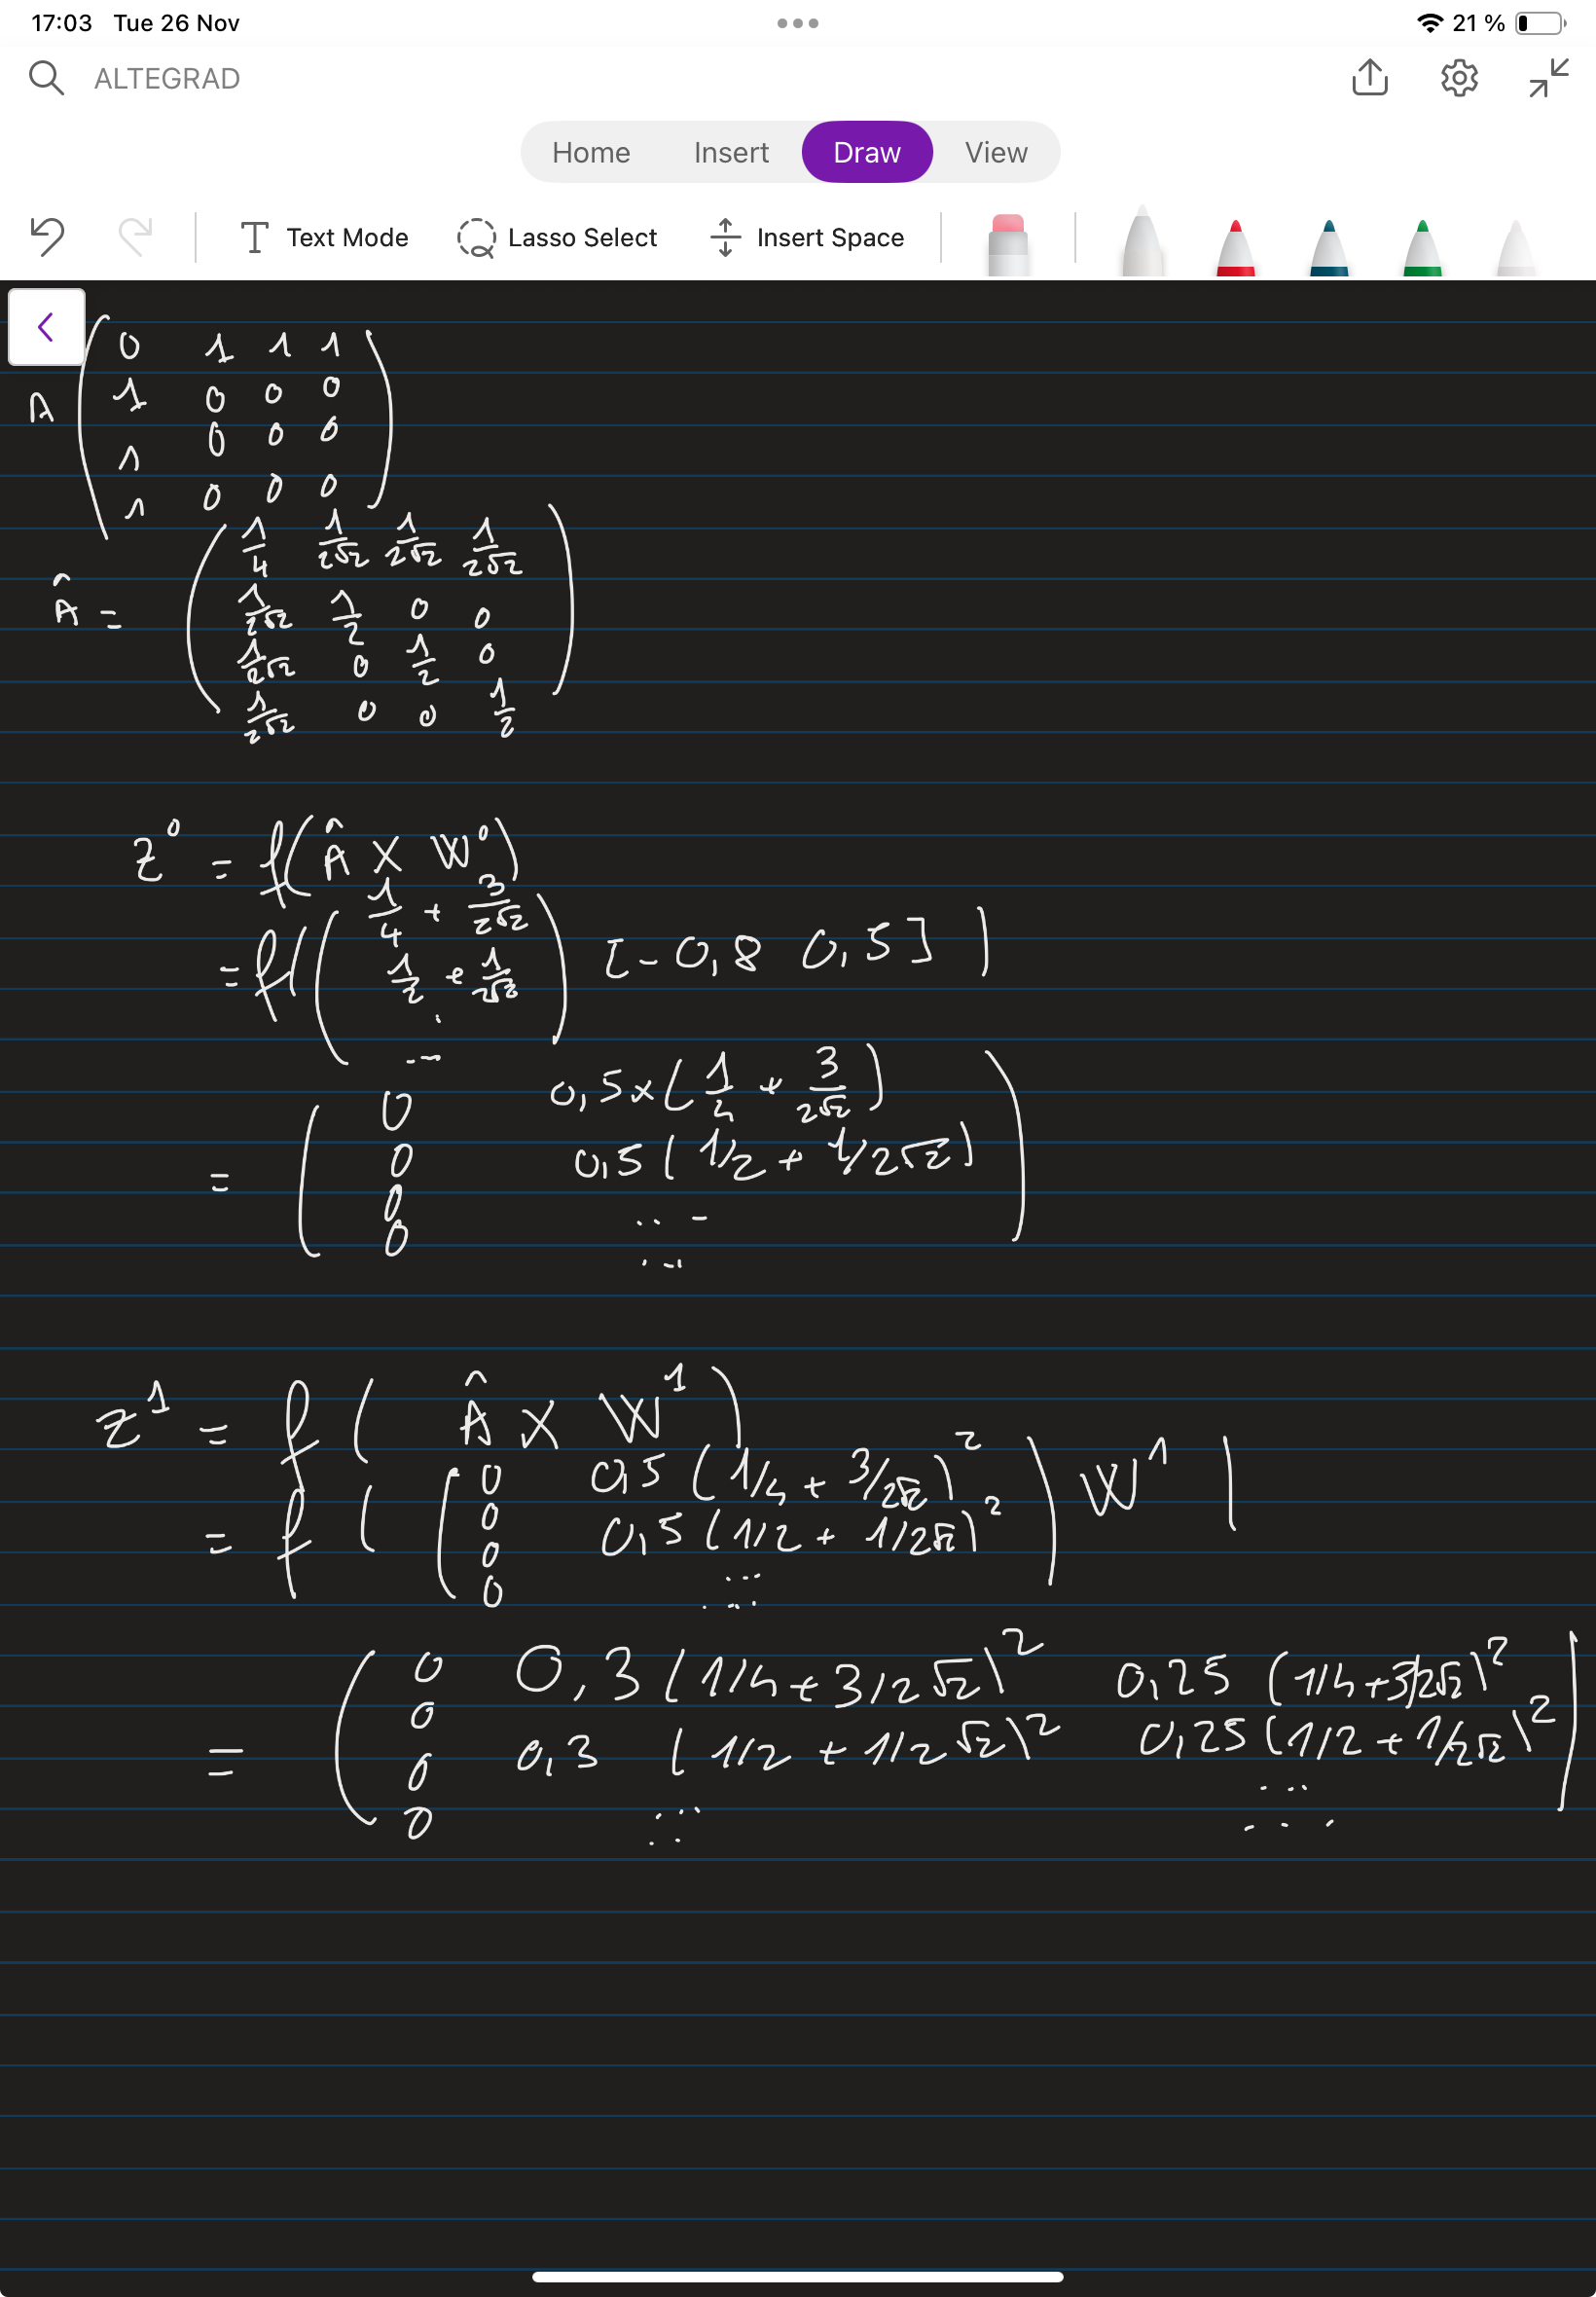 17:03 Tue 26 Nov 21 %
ALTEGRAD
Home Insert Draw View
Text Mode Lasso Select Insert Space
0 1 1 1
A 1 0 0 0
1 0 0 0
1 0 0 0
1/4 1/2√2 1/2√2 1/2√2
Â = 1/2√2 1/2 0 0
1/2√2 0 1/2 0
1/2√2 0 0 1/2
Z⁰ = f(Â X W⁰)
= f( ( 1/4 + 3/2√2
1/2 + 1/2√2
: ... ) [-0,8 0,5] )
= ( 0 0,5×(1/4 + 3/2√2)
0 0,5(1/2 + 1/2√2)
0 ...
0 ... )
Z¹ = f( Â X W¹)
= f( ( 0 0,5(1/4 + 3/2√2)²
0 0,5(1/2 + 1/2√2)²
0 ...
0 ... ) W¹ )
= ( 0 0,3(1/4+3/2√2)² 0,25(1/4+3/2√2)²
0 0,3 (1/2+1/2√2)² 0,25(1/2+1/2√2)²
0 ... ...
0 ... ... )